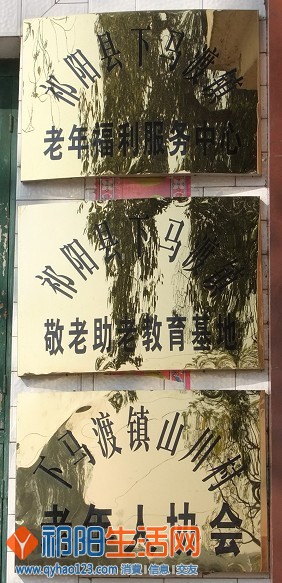 祁阳县下马渡镇
老年福利服务中心
祁阳县下马渡镇
敬老助老教育基地
下马渡镇山川村
老年人协会
祁阳生活网
www.qyhao123.com 消費 信息 交友